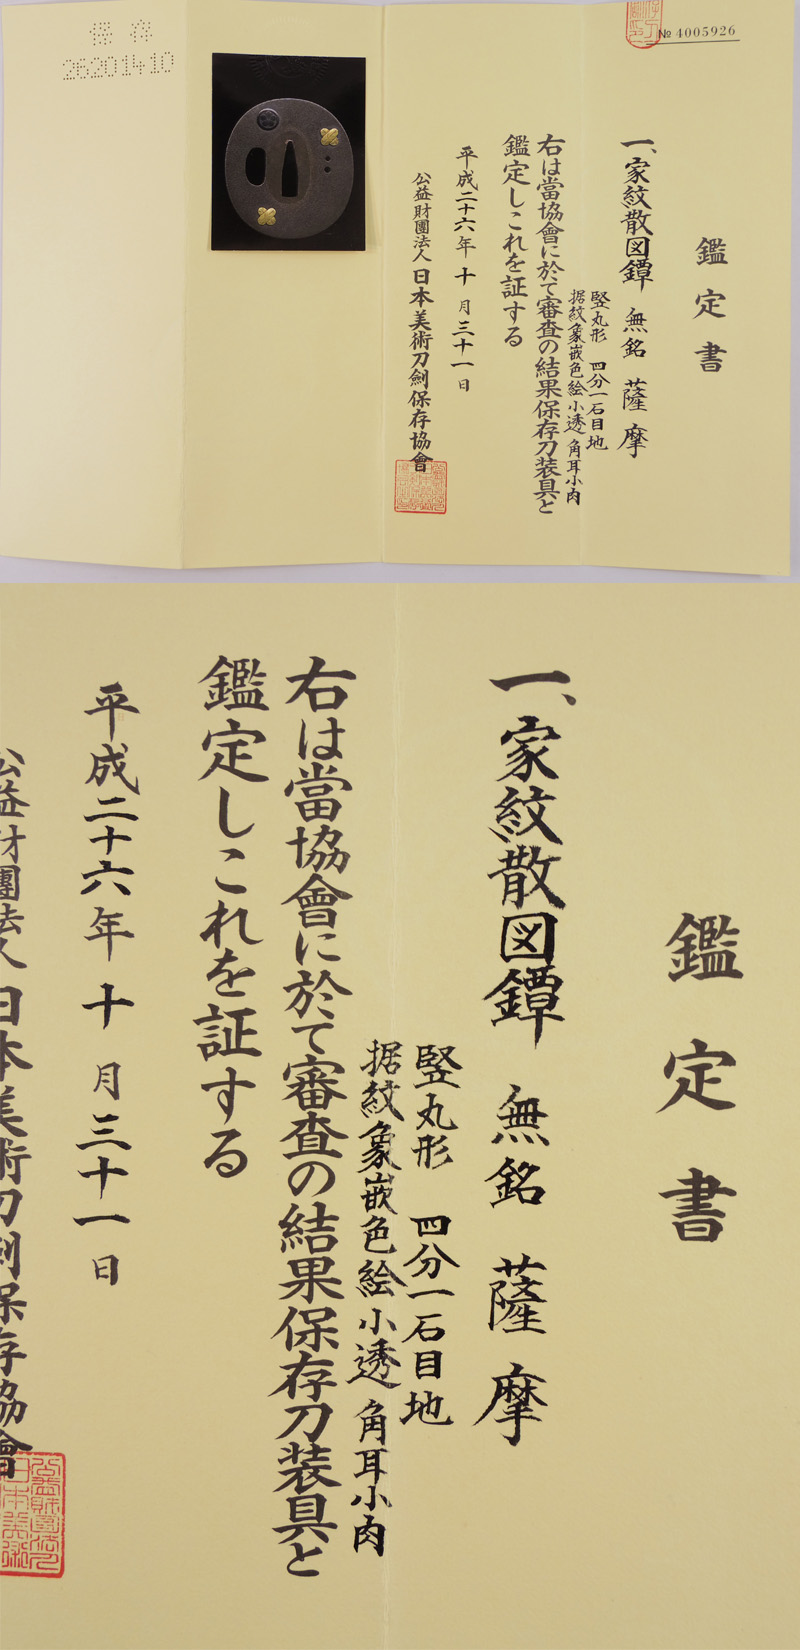 № 4005926
鑑定書
一、家紋散図鐔 無銘 薩摩
竪丸形 四分一石目地
据紋象嵌色絵 小透 角耳小肉
右は當協會に於て審査の結果保存刀装具と
鑑定しこれを証する
平成二十六年 十 月 三十一 日
公益財團法人 日本美術刀劍保存協會
保存
26201410
鑑定書
一、家紋散図鐔 無銘 薩摩
竪丸形 四分一石目地
据紋象嵌色絵 小透 角耳小肉
右は當協會に於て審査の結果保存刀装具と
鑑定しこれを証する
平成二十六年 十 月 三十一 日
公益財團法人 日本美術刀劍保存協會